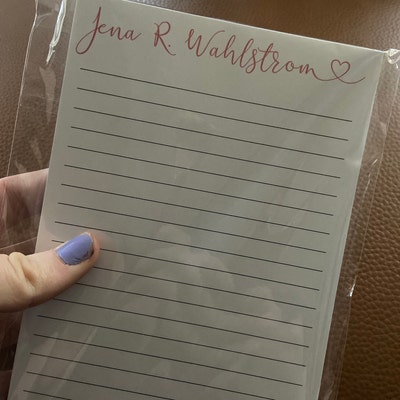 Jena R. Wahlstrom